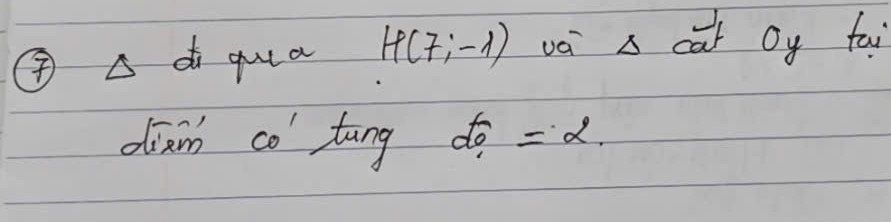 ⑦ Δ đi qua H(7;-1) và Δ cắt Oy tại
điểm có tung độ = 2.